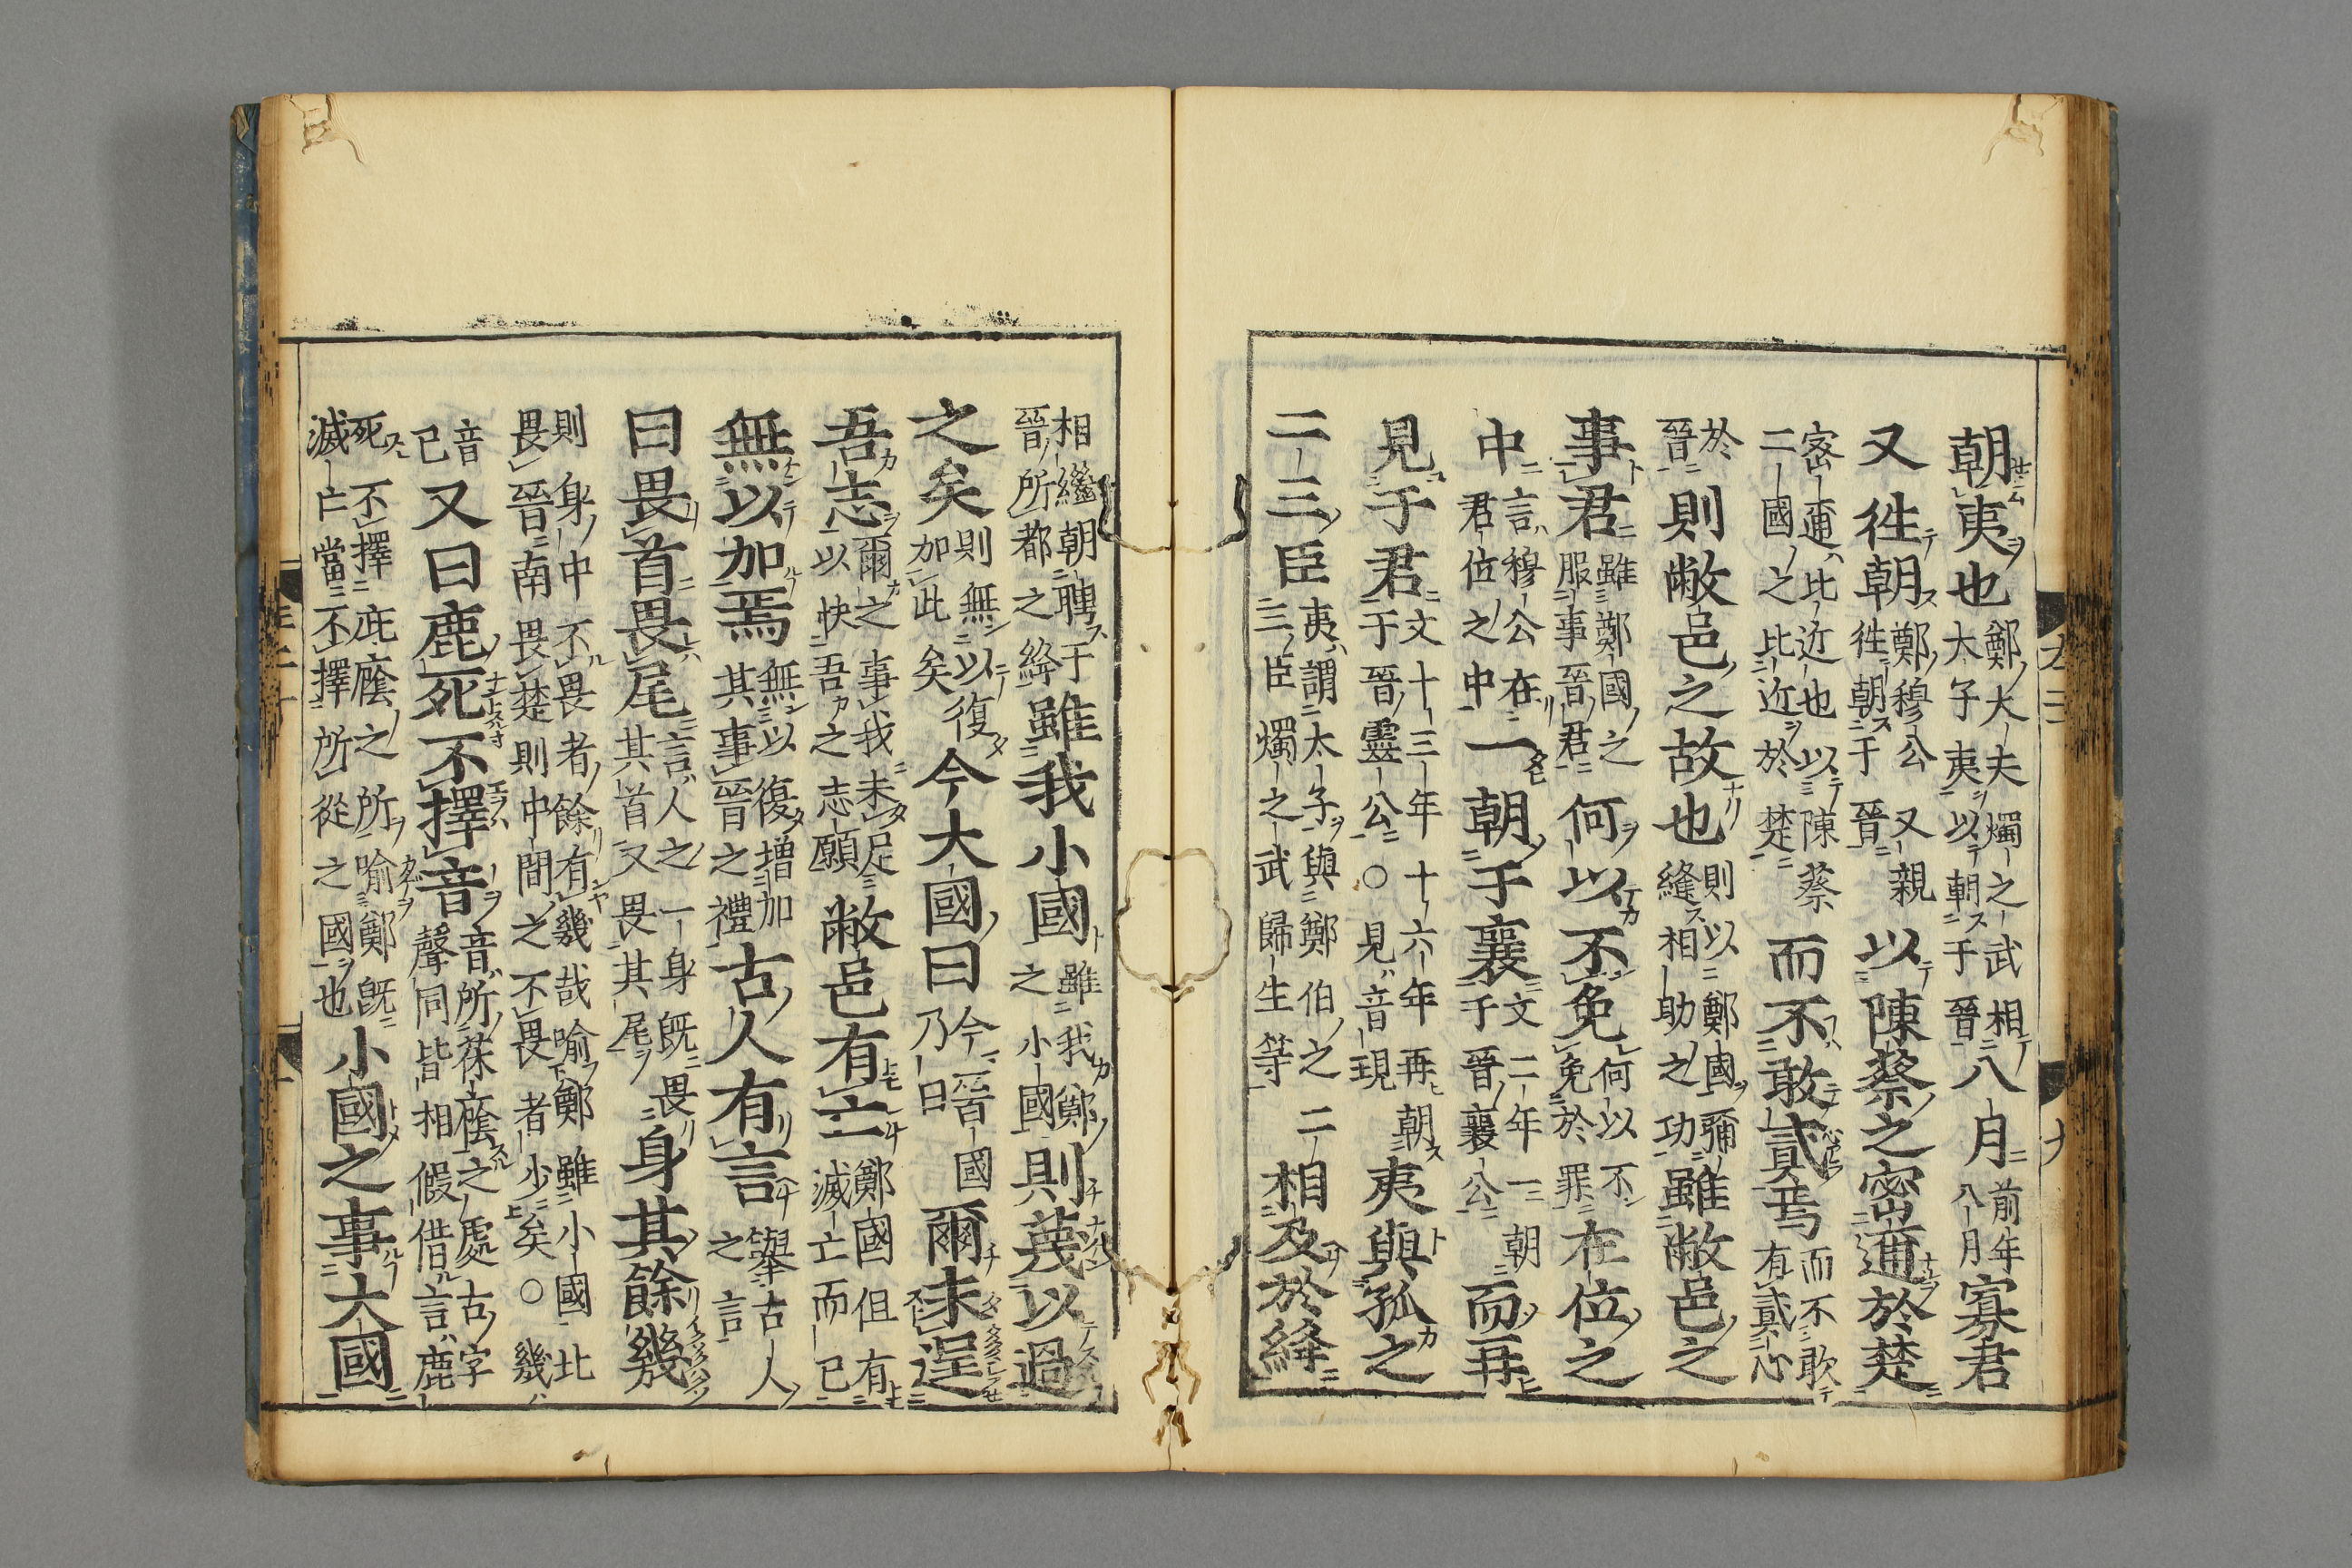 朝夷也鄭大夫燭之武相太子夷以朝于晉八月前年八月寡君
又徃朝鄭穆公又親徃朝于晉以陳蔡之密邇於楚
密邇比近也以陳蔡二國之比近於楚而不敢貳焉而不敢有貳心
於晉則敝邑之故也則以鄭國彌縫相助之功雖敝邑之
事君雖鄭國之服事晉君何以不免何以不免於罪在位之
中言穆公在君位之中一朝于襄文二年一朝于晉襄公而再
見于君文十三年十六年再朝于晉靈公○見音現夷與孤之
二三臣夷謂太子與鄭伯之二三臣燭之武歸生等相及於絳
相繼朝聘于晉所都之絳雖我小國雖我鄭之小國則蔑以過
之矣則無以復加此矣今大國曰今晉國乃曰爾未逞
吾志爾之事我未足以快吾之志願敝邑有亡鄭國但有滅亡而已
無以加焉無以復增加其事晉之禮古人有言舉古人之言
曰畏首畏尾言人之一身既畏其首又畏其尾身其餘幾
則身中不畏者餘有幾哉喻鄭雖小國北畏晉南畏楚則中間之不畏者少矣○幾
音已又曰鹿死不擇音音所茠䕃之處古字聲同皆相假借言鹿
死不擇庇廕之所喻鄭既滅亡當不擇所從之國也小國之事大國